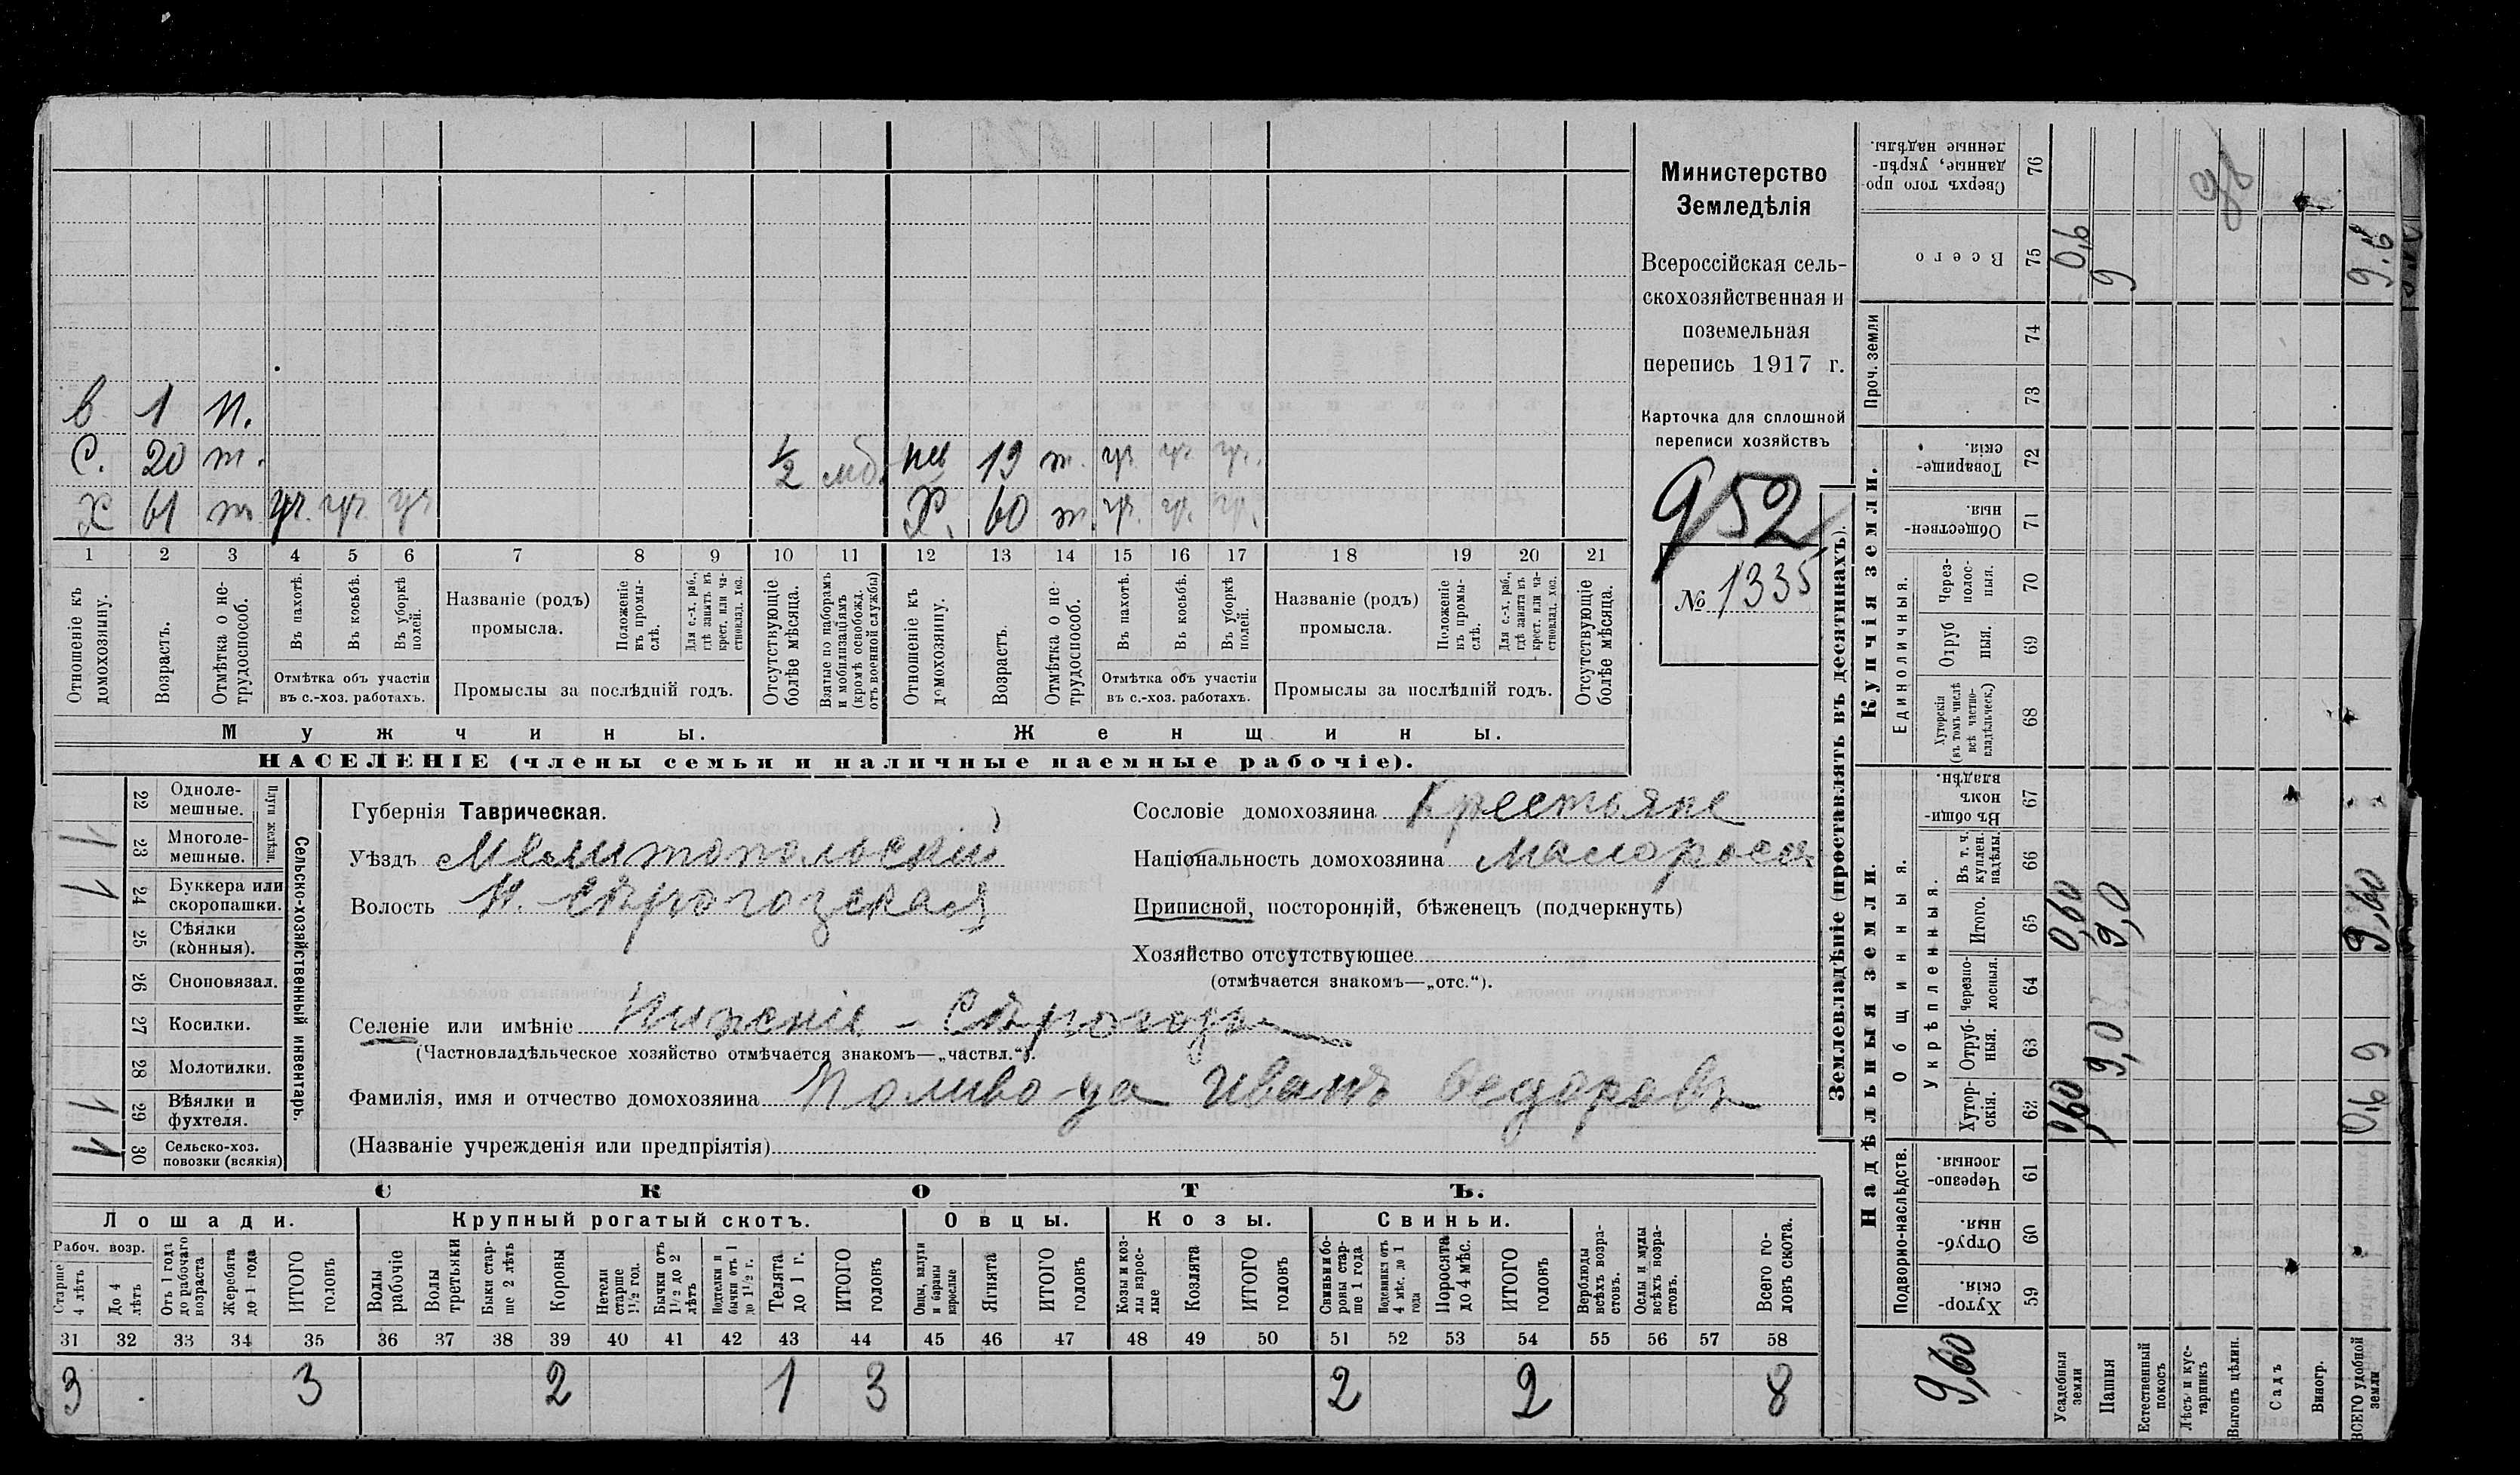 в 1 п.
С. 20 т. 1/2 моб. нев 19 т. уч. уч. уч.
Х 61 т уч. уч. уч Х. 60 т. уч. уч. уч.
1 2 3 4 5 6 7 8 9 10 11 12 13 14 15 16 17 18 19 20 21
Отношеніе къ домохозяину.
Возрастъ.
Отмѣтка о не-трудоспособ.
Въ пахотѣ.
Въ косьбѣ.
Въ уборкѣ полей.
Отмѣтка объ участіи въ с.-хоз. работахъ.
Названіе (родъ) промысла.
Положеніе въ промы-слѣ.
Для с.-х. раб., гдѣ занятъ въ крест. или ча-стновлад. хоз.
Промыслы за послѣдній годъ.
Отсутствующіе болѣе мѣсяца.
Взятые по наборамъ и мобилизаціямъ (кромѣ освобожд. отъ военной службы)
Отношеніе къ домохозяину.
Возрастъ.
Отмѣтка о не-трудоспособ.
Въ пахотѣ.
Въ косьбѣ.
Въ уборкѣ полей.
Отмѣтка объ участіи въ с.-хоз. работахъ.
Названіе (родъ) промысла.
Положеніе въ промы-слѣ.
Для с.-х. раб., гдѣ занята въ крест. или ча-стновлад. хоз.
Промыслы за послѣдній годъ.
Отсутствующіе болѣе мѣсяца.
Мужчины. Женщины.
НАСЕЛЕНІЕ (члены семьи и наличные наемные рабочіе).
Министерство
Земледѣлія
Всероссійская сель-
скохозяйственная и
поземельная
перепись 1917 г.
Карточка для сплошной
переписи хозяйствъ
952
№ 1335
Сельско-хозяйственный инвентарь.
Плуги желѣзн.
22 Однолемешные.
1 23 Многолемешные.
1 24 Буккера или скоропашки.
25 Сѣялки (конныя).
26 Сноповязал.
27 Косилки.
28 Молотилки.
1 29 Вѣялки и фухтеля.
1 30 Сельско-хоз. повозки (всякія)
Губернія Таврическая.
Уѣздъ Мелитопольский
Волость Н. Сѣрогозская
Сословіе домохозяина Крестьяне
Національность домохозяина Малоросс
Приписной, посторонній, бѣженецъ (подчеркнуть)
Хозяйство отсутствующее
(отмѣчается знакомъ—„отс.“).
Селеніе или имѣніе Нижніе - Сѣрогозы
(Частновладѣльческое хозяйство отмѣчается знакомъ—„частвл.“).
Фамилія, имя и отчество домохозяина Поливода Иванъ Федоровъ
(Названіе учрежденія или предпріятія)
СКОТЪ.
Лошади. Крупный рогатый скотъ. Овцы. Козы. Свиньи.
Рабоч. возр.
Старше 4 лѣтъ
До 4 лѣтъ
Отъ 1 года до рабочаго возраста
Жеребята до 1 года
ИТОГО головъ
Волы рабочіе
Волы третьяки
Быки стар-ше 2 лѣтъ
Коровы
Нетели старше 1 1/2 год.
Бычки отъ 1 1/2 до 2 лѣтъ
Подтелки и бычки отъ 1 до 1 1/2 г.
Телята до 1 г.
ИТОГО головъ
Овцы, валухи и бараны взрослые
Ягнята
ИТОГО головъ
Козы и коз-лы взрос-лые
Козлята
ИТОГО головъ
Свиньи и бо-ровы стар-ше 1 года
Подсвинки отъ 4 мѣс. до 1 года
Поросята до 4 мѣс.
ИТОГО головъ
Верблюды всѣхъ возра-стовъ.
Ослы и мулы всѣхъ возра-стовъ.
Всего го-ловъ скота.
31 32 33 34 35 36 37 38 39 40 41 42 43 44 45 46 47 48 49 50 51 52 53 54 55 56 57 58
3 3 2 1 3 2 2 8
Землевладѣніе (проставлять въ десятинахъ).
Надѣльныя земли. Купчія земли. Проч. земли
Подворно-наслѣдств.
Общинныя.
Укрѣпленныя.
Единоличныя.
Хутор-скія. 59
Отруб-ныя. 60
Черезпо-лосныя. 61
Хутор-скія. 62
Отруб-ныя. 63
Черезпо-лосныя. 64
Итого. 65
Въ т. ч. куплен. надѣлы. 66
Въ общи-номъ владѣн. 67
Хуторскія (въ томъ числѣ всѣ частно-владѣльческ.) 68
Отруб ныя. 69
Через-полос-ныя. 70
Обществен-ныя. 71
Товарище-скія. 72
73
74
Всего 75
Сверхъ того про-данные, укрѣп-ленные надѣлы. 76
9,60
Усадебныя земли 0,60 0,60 0,6
Пашня 9,0 9,0 9
Естественный покосъ
Лѣсъ и кус-тарникъ
Выгонъ цѣлин.
Садъ
Виногр.
ВСЕГО удобной земли 0,6 9 9,60 9.6